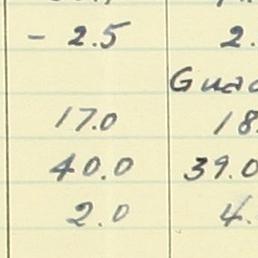 - 2.5 2.
Guad
17.0 18.
40.0 39.0
2.0 4.